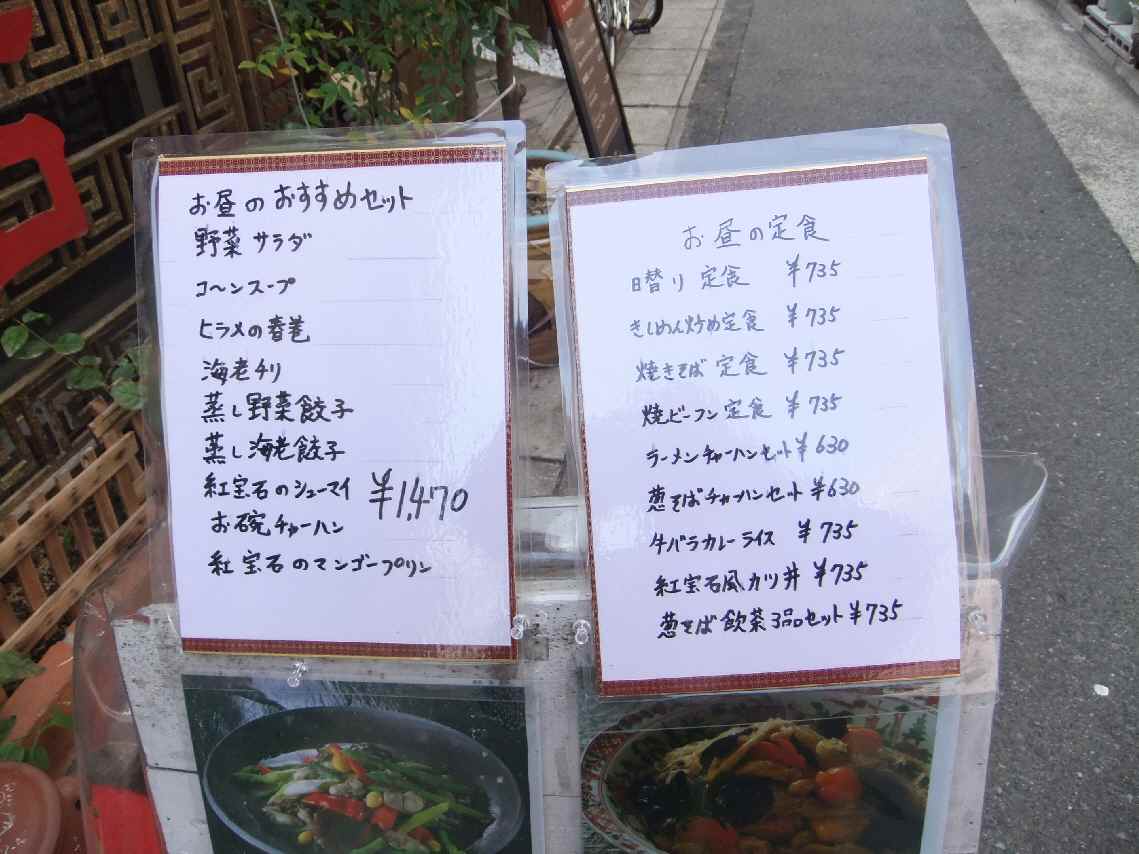 お昼のおすすめセット
野菜サラダ
コーンスープ
ヒラメの春巻
海老チリ
蒸し野菜餃子
蒸し海老餃子
紅宝石のシューマイ
¥1,470
お碗チャーハン
紅宝石のマンゴープリン
お昼の定食
日替り定食 ¥735
きしめん炒め定食 ¥735
焼きそば定食 ¥735
焼ビーフン定食 ¥735
ラーメンチャーハンセット ¥630
葱そばチャーハンセット ¥630
牛バラカレーライス ¥735
紅宝石風カツ丼 ¥735
葱そば飲茶3品セット ¥735